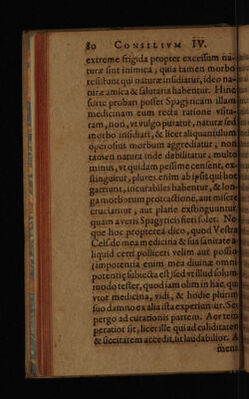 80 CONSILIVM IV.
extreme frigida propter excessum na-
turæ sint inimica, quia tamen morbo
resistunt qui naturæ insidiatur, ideo na-
turæ amica & salutaria habentur. Hinc
forte probari posset Spagyricam illam
medicinam cum recta ratione vsita-
tam, non, vt vulgo putatur, naturæ sed
morbo insidiari, & licet aliquantulum
operosius morbum aggrediatur, non
tamen natura inde debilitatur, multo
minus, vt quidam pessime censent, ex-
stinguitur, plures enim ab ipsis qui hoc
garriunt, incurabiles habentur, & lon-
ga morborum protractione, aut misere
cruciantur, aut plane exstinguuntur
quam a veris Spagyricis fieri solet. Ne-
que hoc propterea dico, quod Vestra
Cels. de mea medicina & sua sanitate a-
liquid certi polliceri velim aut possim
(impotentia enim mea diuinæ omni-
potentiæ subiecta est) sed vt illud solum-
modo tester, quod iam olim in hac, qua
vtor medicina, vidi, & hodie plurimi
suo damno ex alia ista experiuntur. Sed
pergo ad curationis partem. Aer tem-
peratior sit, licet ille qui ad caliditatem
& siccitatem accedit, sit laudabilior. A-